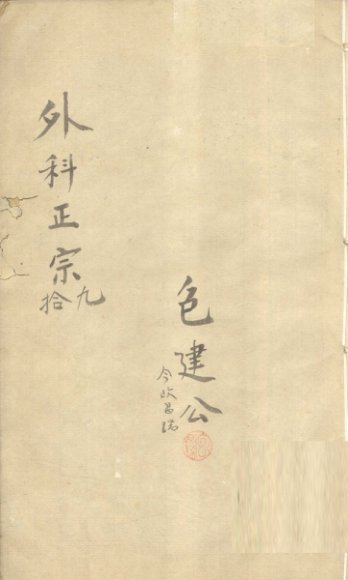 外科正宗
九
拾
色建公
今改昌瑞